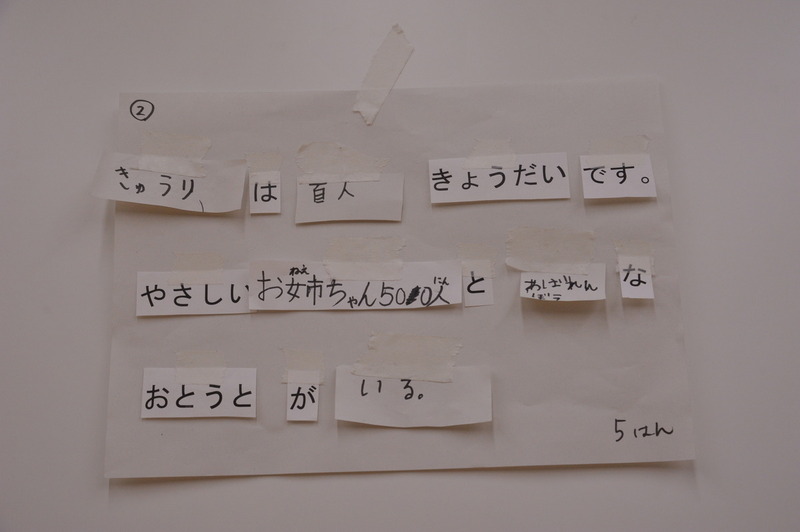 ②
きゅうり、は 百人 きょうだい です。
やさしい お姉ちゃん500人 と あばれん な
おとうと が いる。
5はん